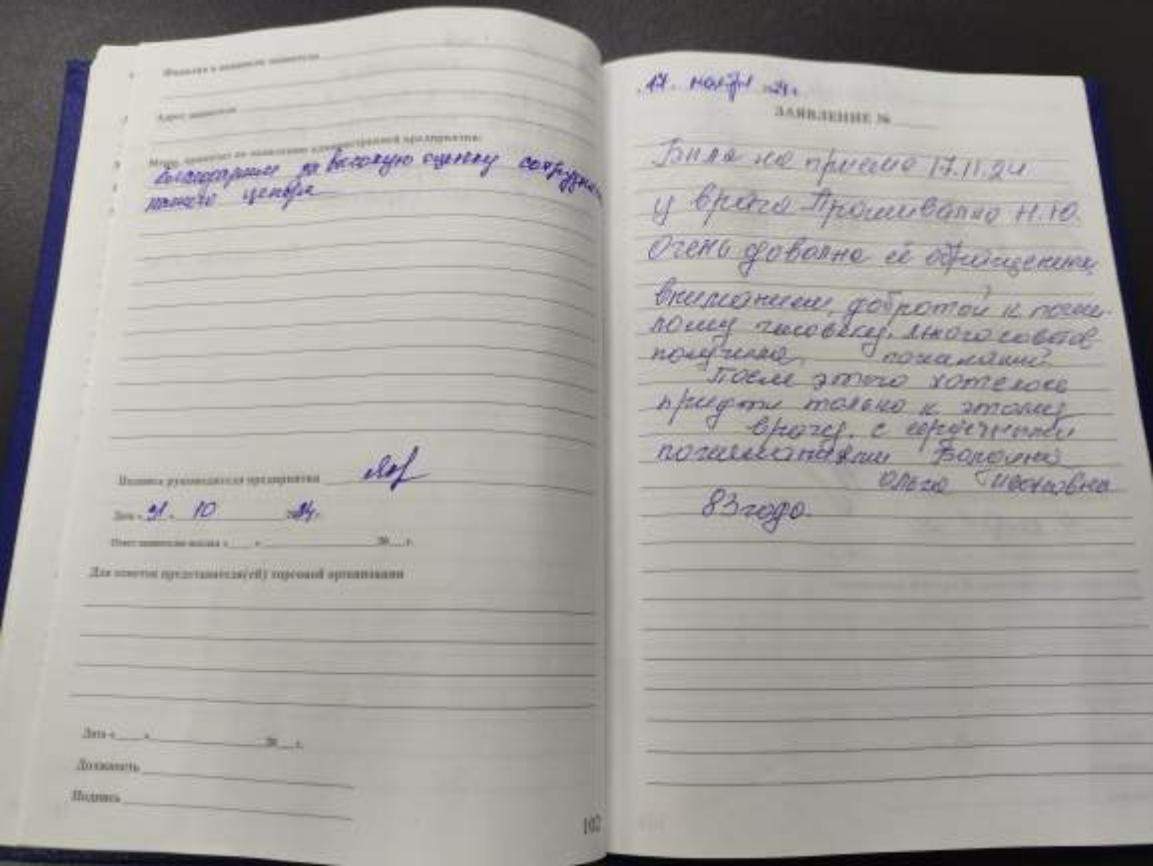 Фамилия и инициалы заявителя
Адрес заявителя
Меры, принятые по заявлению администрацией предприятия:
благодарим за высокую оценку сотрудни
нашего центра
Подпись руководителя предприятия
Дата « 31 » 10 2024г.
Ответ заявителю выслан « » 20 г.
Для ответов представителя(ей) торговой организации
Дата « » 20 г.
Должность
Подпись
102
17. ноября 24г.
ЗАЯВЛЕНИЕ №
Была на приеме 17.11.24
у врача Н.Ю.
Очень довольна её обращением
вниманием, добротой к пожи-
лому человеку, много советов
получила, пожеланий.
После этого хотелось
придти только к этому
врачу. с сердечными
пожеланиями
Ольга
83 года.